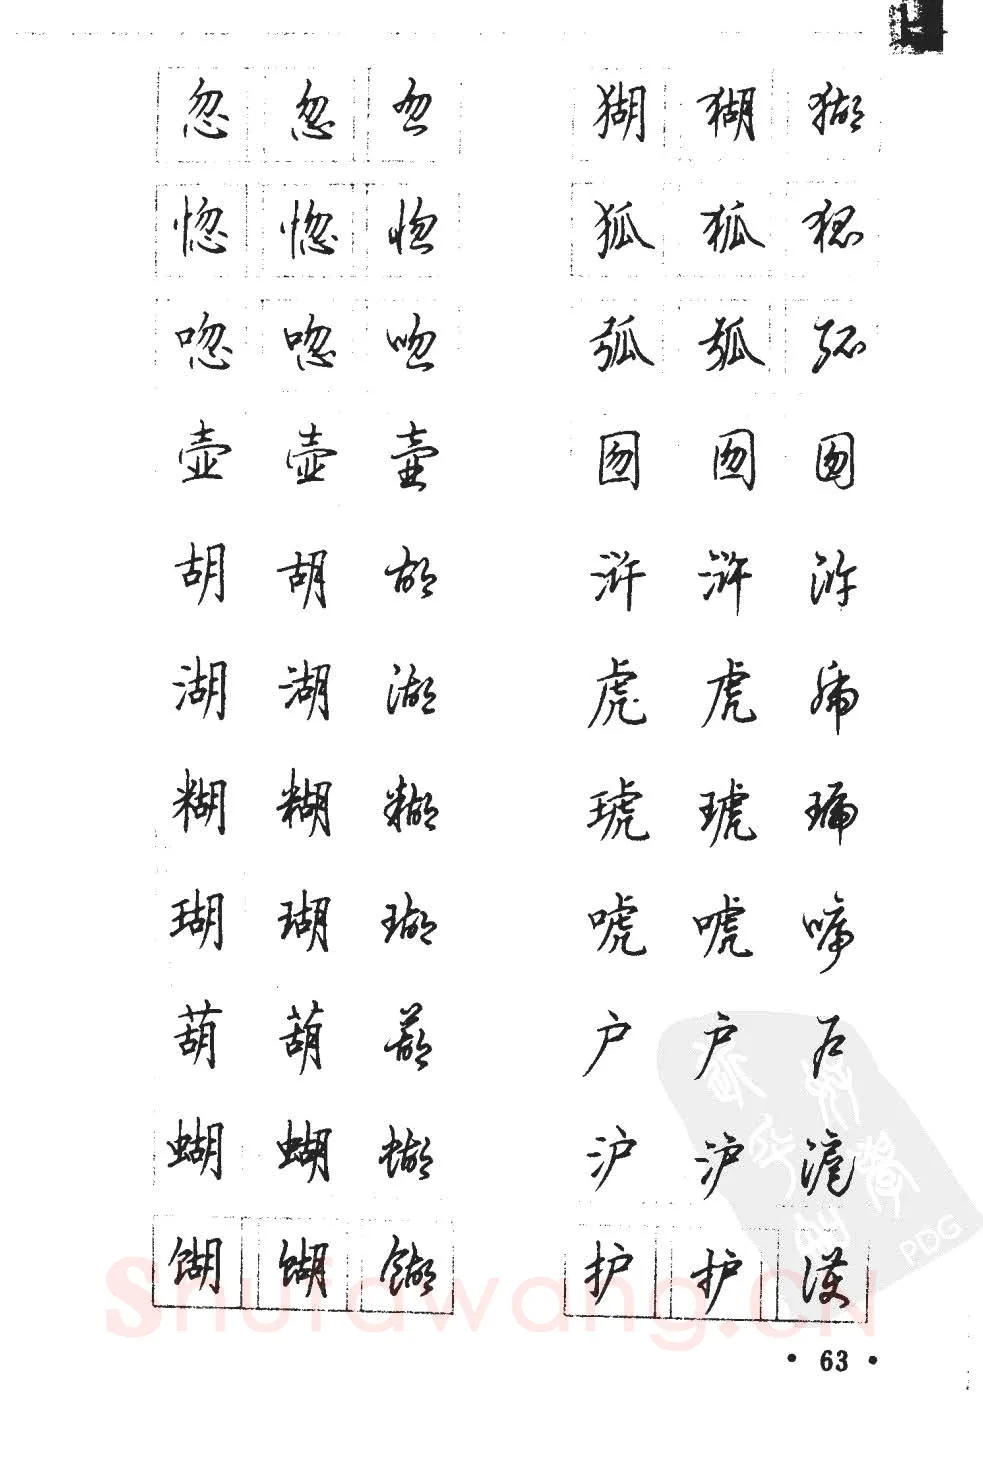 忽 忽 忽 猢 猢 猢
惚 惚 惚 狐 狐 狐
唿 唿 唿 弧 弧 弧
壶 壶 壶 囫 囫 囫
胡 胡 胡 浒 浒 浒
湖 湖 湖 虎 虎 虎
糊 糊 糊 琥 琥 琥
瑚 瑚 瑚 唬 唬 唬
葫 葫 葫 户 户 户
蝴 蝴 蝴 沪 沪 滬
猢 猢 餬 护 护 護
Shufawang.CN
PDG
• 63 •